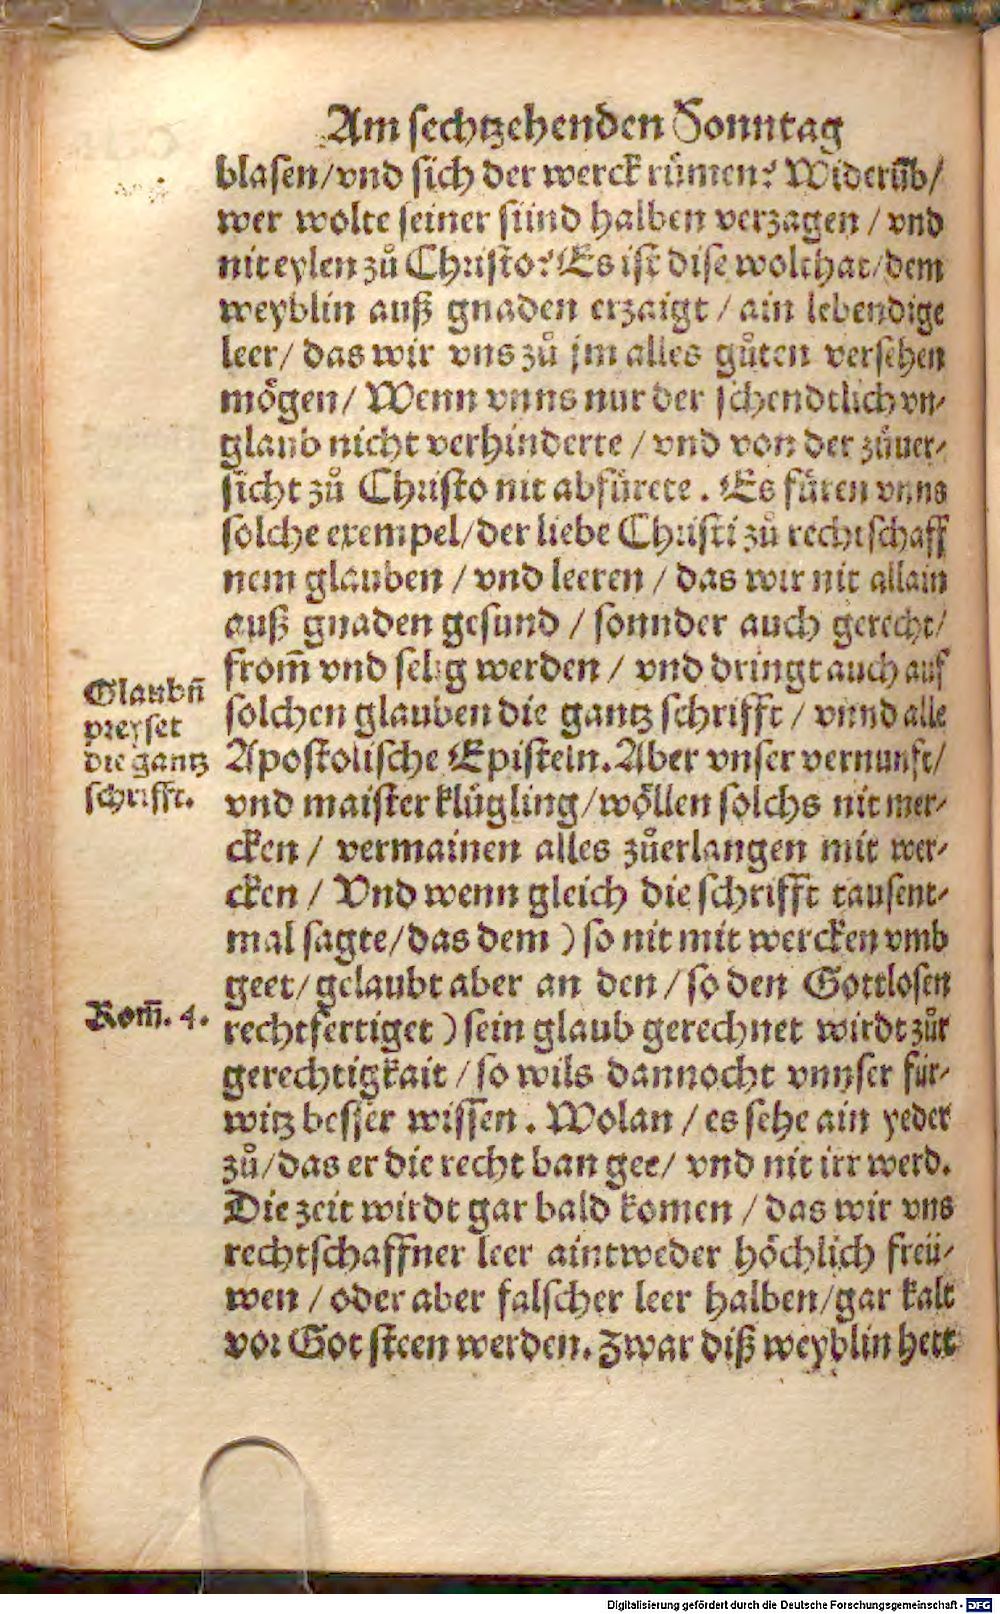 Am sechtzehenden Sonntag
blasen/vnd sich der werck růmen? Widerūb/
wer wolte seiner sünd halben verzagen / vnd
nit eylen zů Christo? Es ist dise wolthat/dem
weyblin auß gnaden erzaigt / ain lebendige
leer/ das wir vns zů jm alles gůten versehen
mögen/ Wenn vnns nur der schendtlich vn-
glaub nicht verhinderte / vnd von der zůuer-
sicht zů Christo nit abfürete . Es füren vnns
solche exempel/der liebe Christi zů rechtschaff
nem glauben / vnd leeren / das wir nit allain
auß gnaden gesund / sonnder auch gerecht/
from̄ vnd selig werden / vnd dringt auch auf
solchen glauben die gantz schrifft / vnnd alle
Apostolische Episteln. Aber vnser vernunft/
vnd maister klůgling/wöllen solchs nit mer-
cken / vermainen alles zůerlangen mit wer-
cken / Vnd wenn gleich die schrifft tausent-
mal sagte/das dem ) so nit mit wercken vmb
geet/gelaubt aber an den/so den Gottlosen
rechtfertiget ) sein glaub gerechnet wirdt zůr
gerechtigkait / so wils dannocht vnnser für-
witz besser wissen . Wolan / es sehe ain yeder
zů/das er die recht ban gee/ vnd nit irr werd.
Die zeit wirdt gar bald komen / das wir vns
rechtschaffner leer aintweder höchlich freü-
wen / oder aber falscher leer halben/gar kalt
vor Got steen werden. Zwar diß weyblin hett
Glaubn̄
preyset
die gantz
schrifft.
Rom̄. 4.
Digitalisierung gefördert durch die Deutsche Forschungsgemeinschaft - DFG